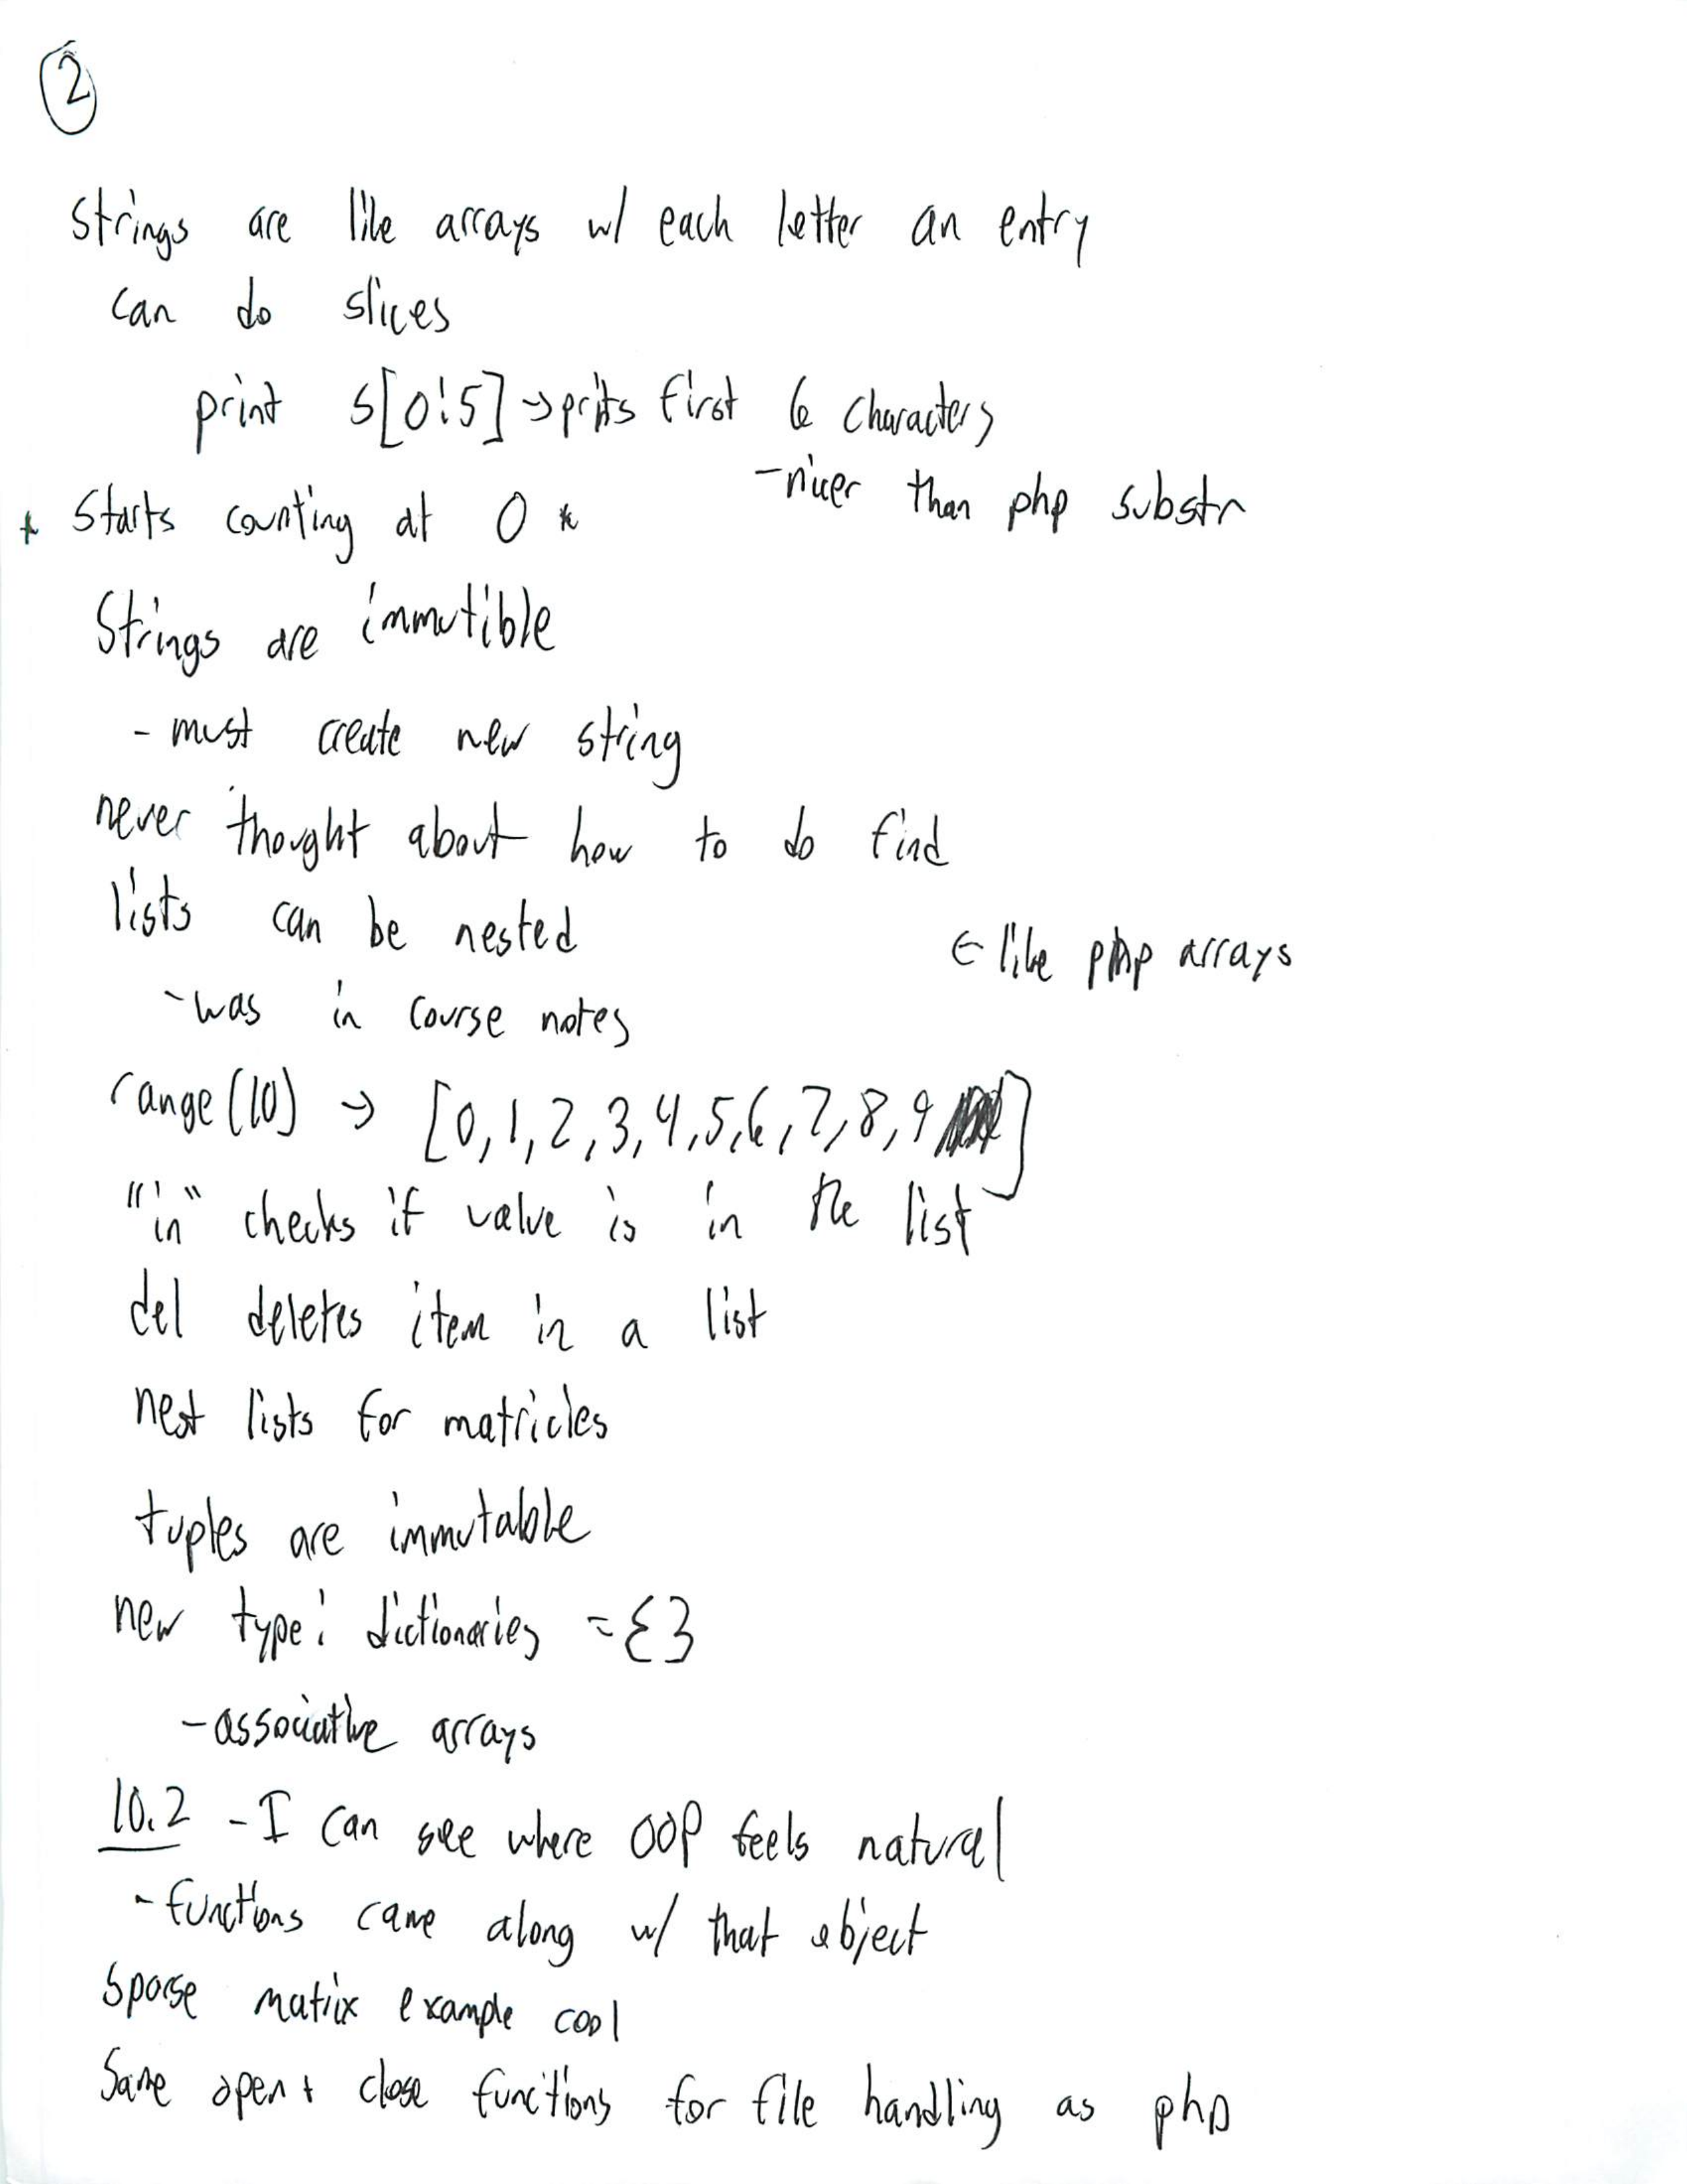 2
Strings are like arrays w/ each letter an entry
can do slices
print s[0:5] → prits first 6 characters
- nicer than php substr
* Starts counting at 0 *
Strings are immutible
- must create new string
never thought about how to do find
lists can be nested
← like php arrays
- was in course notes
range(10) → [0,1,2,3,4,5,6,7,8,9]
"in" checks if value is in the list
del deletes item in a list
nest lists for matricies
tuples are immutable
new type: dictionaries = {}
- associative arrays
10.2 - I can see where OOP feels natural
- functions came along w/ that object
Sparse matrix example cool
Same open + close functions for file handling as php